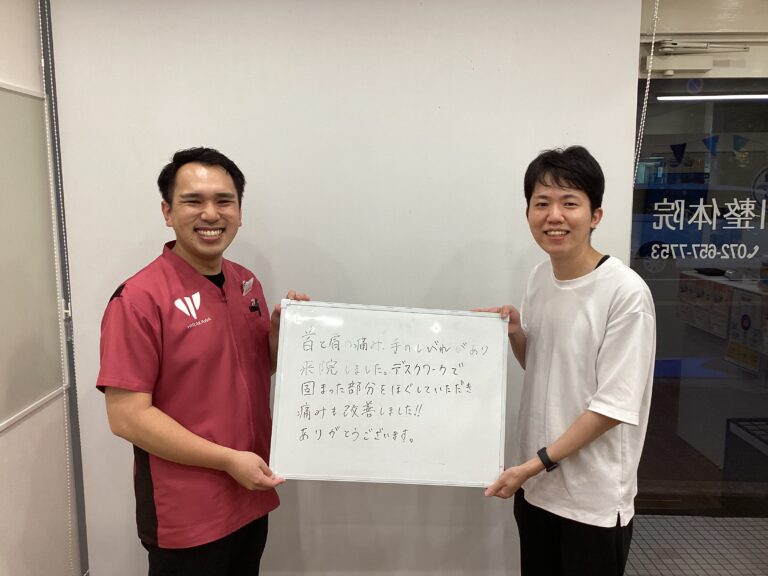 首と肩の痛み、手のしびれがあり
来院しました。デスクワークで
固まった部分をほぐしていただき
痛みも改善しました!!
ありがとうございます。
HIRAKAWA
川整体院
072-657-7753